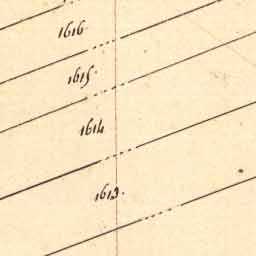 1616
1615
1614
1613.